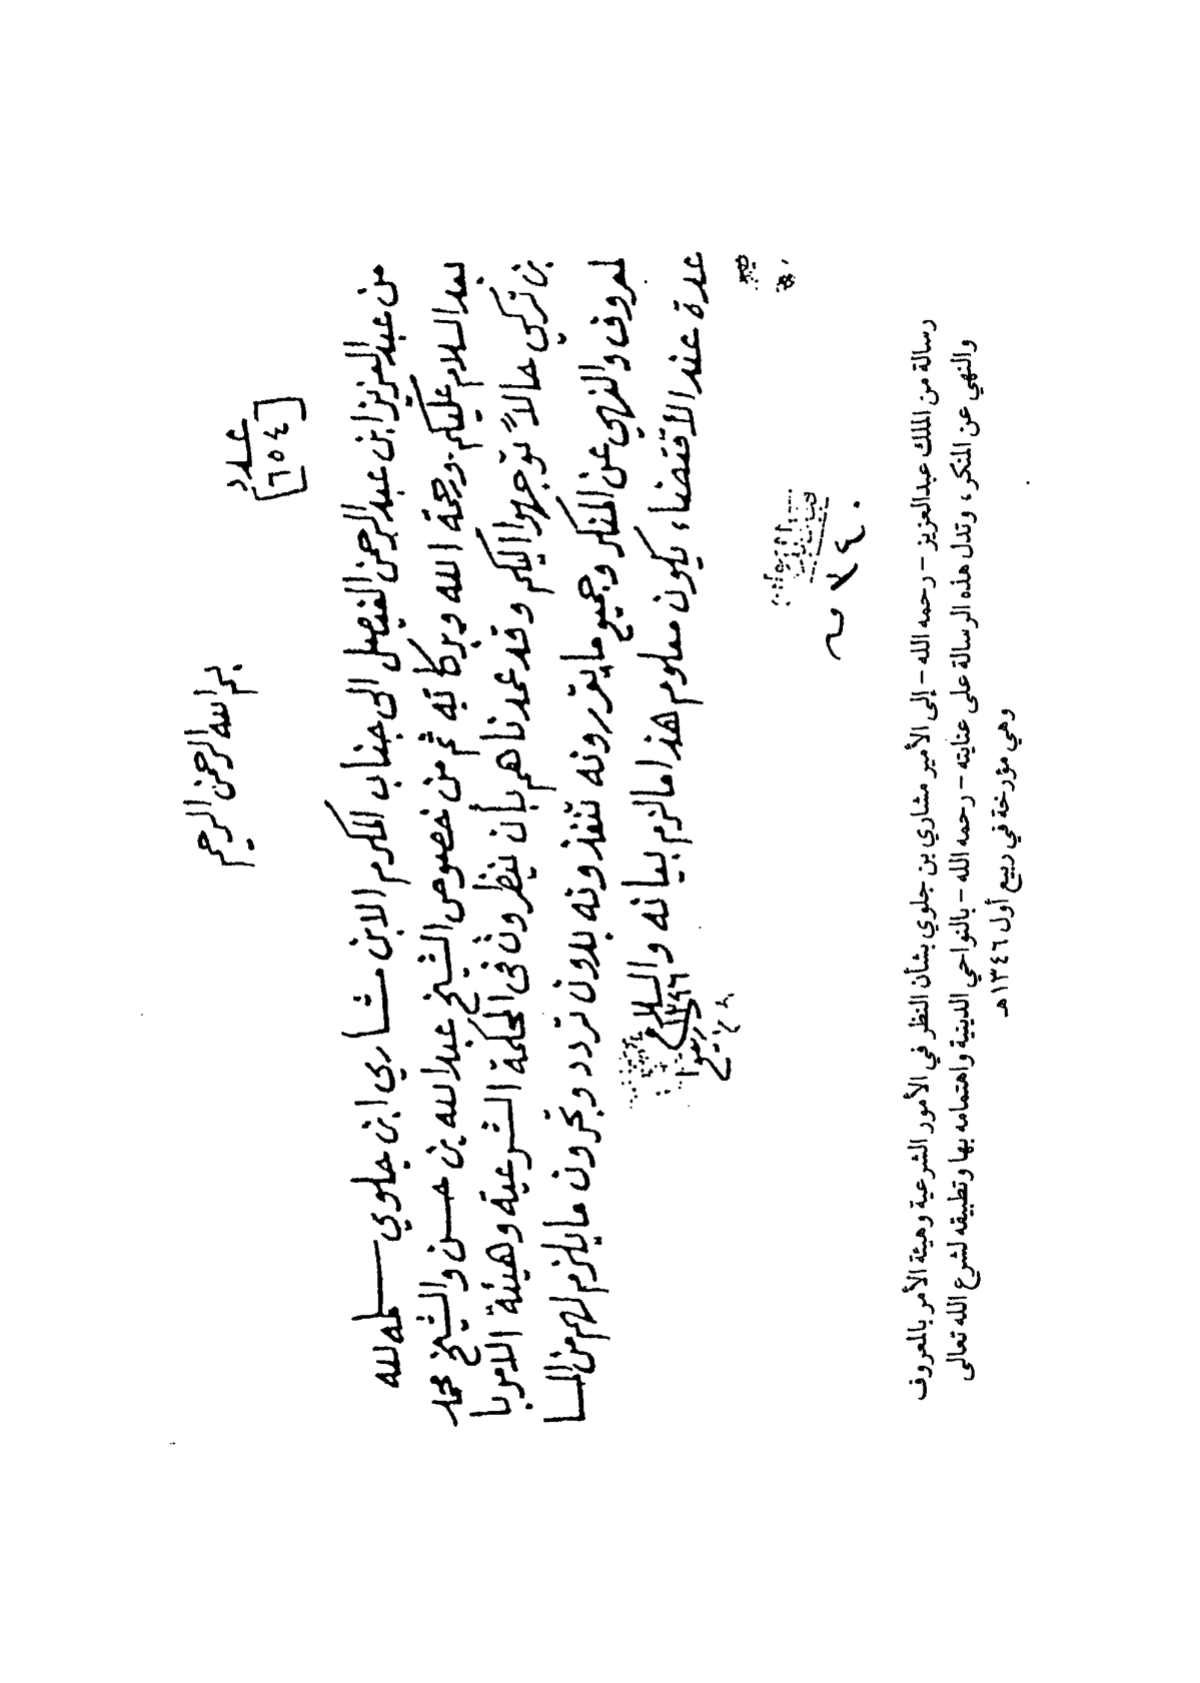 بسم الله الرحمن الرحيم
عدد
[٦٥٤]
من عبدالعزيز ابن عبدالرحمن الفيصل الى جناب المكرم الابن مشاري ابن جلوي سلمه الله
بعد السلام عليكم ورحمة الله وبركاته ثم من خصوص الشيخ عبدالله بن حسن والشيخ محمد
بن تركي حالاً توجهوا اليكم وقد عمدناهم بأن ينظرون فى المحكمة الشرعية وهيئة الامر با
لمعروف والنهي عن المنكر وجميع ما يقررونه تنفذونه بدون تردد وتجرون ما يلزم لهم من المسا
عدة عند الأقتضاء يكون معلوم هذا ما لزم بيانه والسلام
١٣٤٦
رسالة من الملك عبدالعزيز - رحمه الله - إلى الأمير مشاري بن جلوي بشأن النظر في الأمور الشرعية وهيئة الأمر بالمعروف
والنهي عن المنكر، وتدل هذه الرسالة على عنايته - رحمه الله - بالنواحي الدينية واهتمامه بها وتطبيقه لشرع الله تعالى
وهي مؤرخة في ربيع أول ١٣٤٦هـ